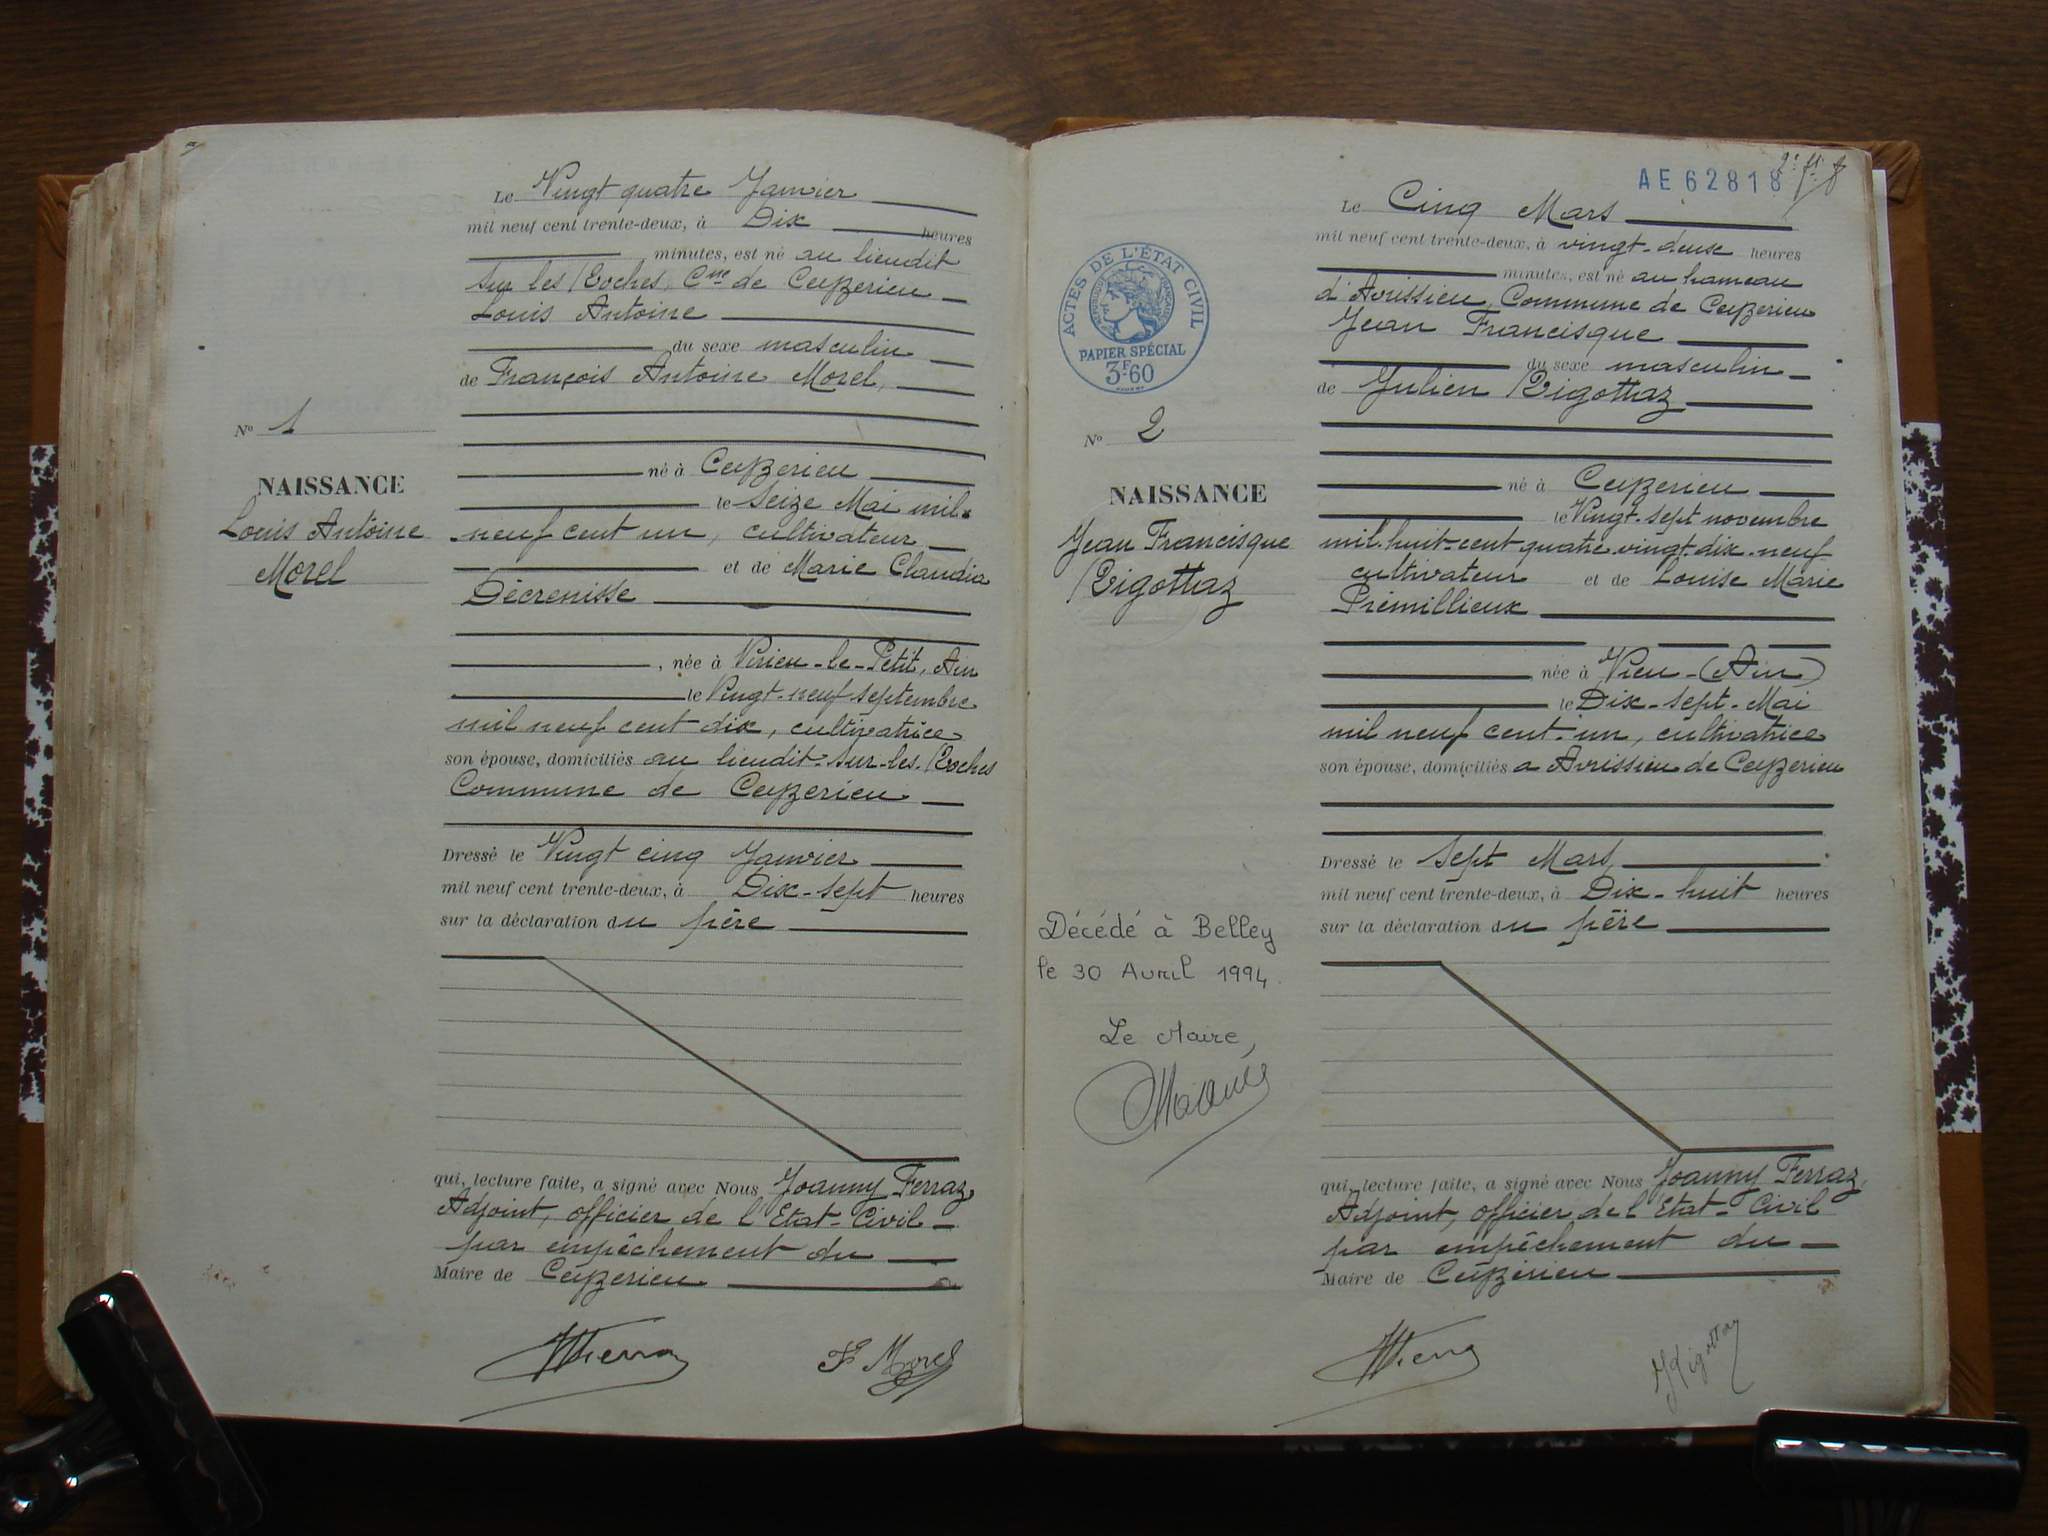 Le Vingt quatre Janvier
mil neuf cent trente-deux, à Dix heures
minutes, est né au lieudit
sur les Roches, Cne de Ceyzerieu
Louis Antoine
du sexe masculin
de François Antoine Morel,
né à Ceyzerieu
le seize Mai mil
neuf cent un, cultivateur
et de Marie Claudia
Décrenisse
, née à Virieu-le-Petit, Ain
le Vingt-neuf septembre
mil neuf cent dix, cultivatrice
son épouse, domiciliés au lieudit-sur-les-Roches
Commune de Ceyzerieu
Dressé le Vingt cinq Janvier
mil neuf cent trente-deux, à Dix-sept heures
sur la déclaration du père
qui, lecture faite, a signé avec Nous Joanny Ferraz,
Adjoint, officier de l'Etat-Civil
par empêchement du
Maire de Ceyzerieu
F Morel
N° 1
NAISSANCE
Louis Antoine
Morel
AE 62818
Le Cinq Mars
mil neuf cent trente-deux, à vingt-deux heures
minutes, est né au hameau
d'Avrissieu, Commune de Ceyzerieu
Jean Francisque
du sexe masculin
de Julien Rigottaz
né à Ceyzerieu
le Vingt-sept novembre
mil-huit-cent quatre vingt-dix-neuf
cultivateur et de Louise Marie
Prémillieux
née à Vieu-(Ain)
le Dix-sept-Mai
mil neuf cent-un, cultivatrice
son épouse, domiciliés a Avrissieu de Ceyzerieu
Dressé le sept Mars
mil neuf cent trente-deux, à Dix-huit heures
sur la déclaration du père
qui, lecture faite, a signé avec Nous Joanny Ferraz,
Adjoint, officier de l'Etat-Civil
par empêchement du
Maire de Ceyzerieu
JRigottaz
ACTES DE L'ÉTAT CIVIL
RÉPUBLIQUE FRANÇAISE
PAPIER SPÉCIAL
3F60
N° 2
NAISSANCE
Jean Francisque
Rigottaz
Décédé à Belley
le 30 Avril 1994.
Le Maire,